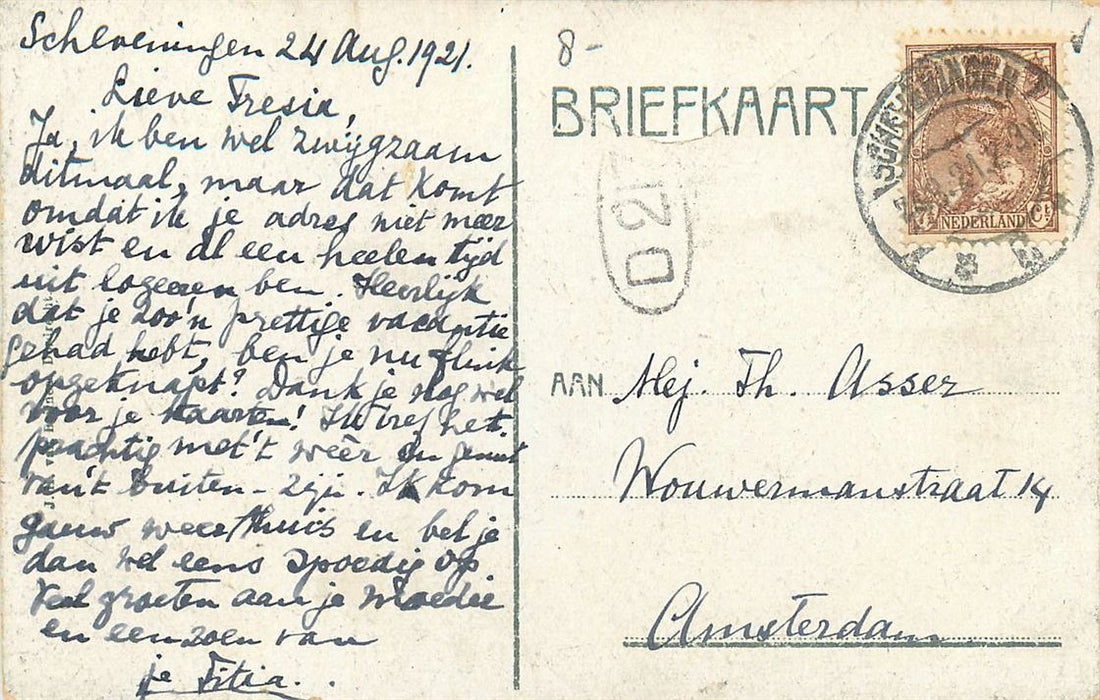 Scheveningen 24 Aug. 1921.
Lieve Tresia,
Ja, ik ben wel zwijgzaam
ditmaal, maar dat komt
omdat ik je adres niet meer
wist en al een heelen tijd
uit logeeren ben. Heerlijk
dat je zoo'n prettige vacantie
gehad hebt, ben je nu flink
opgeknapt? Dank je nog wel
voor je kaarten! Ik tref het
prachtig met 't weêr en geniet
van 't buiten-zijn. Ik kom
gauw weer thuis en bel je
dan wel eens spoedig op
Veel groeten aan je Moeder
en een zoen van
je Titia.
8-
BRIEFKAART
SCHEVENINGEN
7½ NEDERLAND Ct
D 21
AAN Mej. Th. Asser
Wouwermanstraat 14
Amsterdam